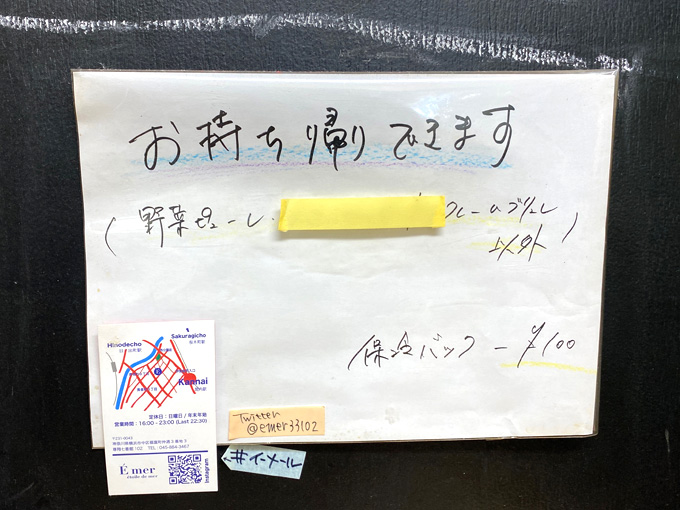 お持ち帰りできます
(野菜ピューレ・
クレームブリュレ
以外)
保冷バック - ¥100
Hinodecho
日ノ出町駅
Sakuragicho
桜木町駅
Kannai
関内駅
定休日:日曜日 / 年末年始
営業時間:16:00 - 23:00 (Last 22:30)
TEL : 045-664-3467
É mer
étoile de mer
Instagram
Twitter
@emer33102
#イーメール